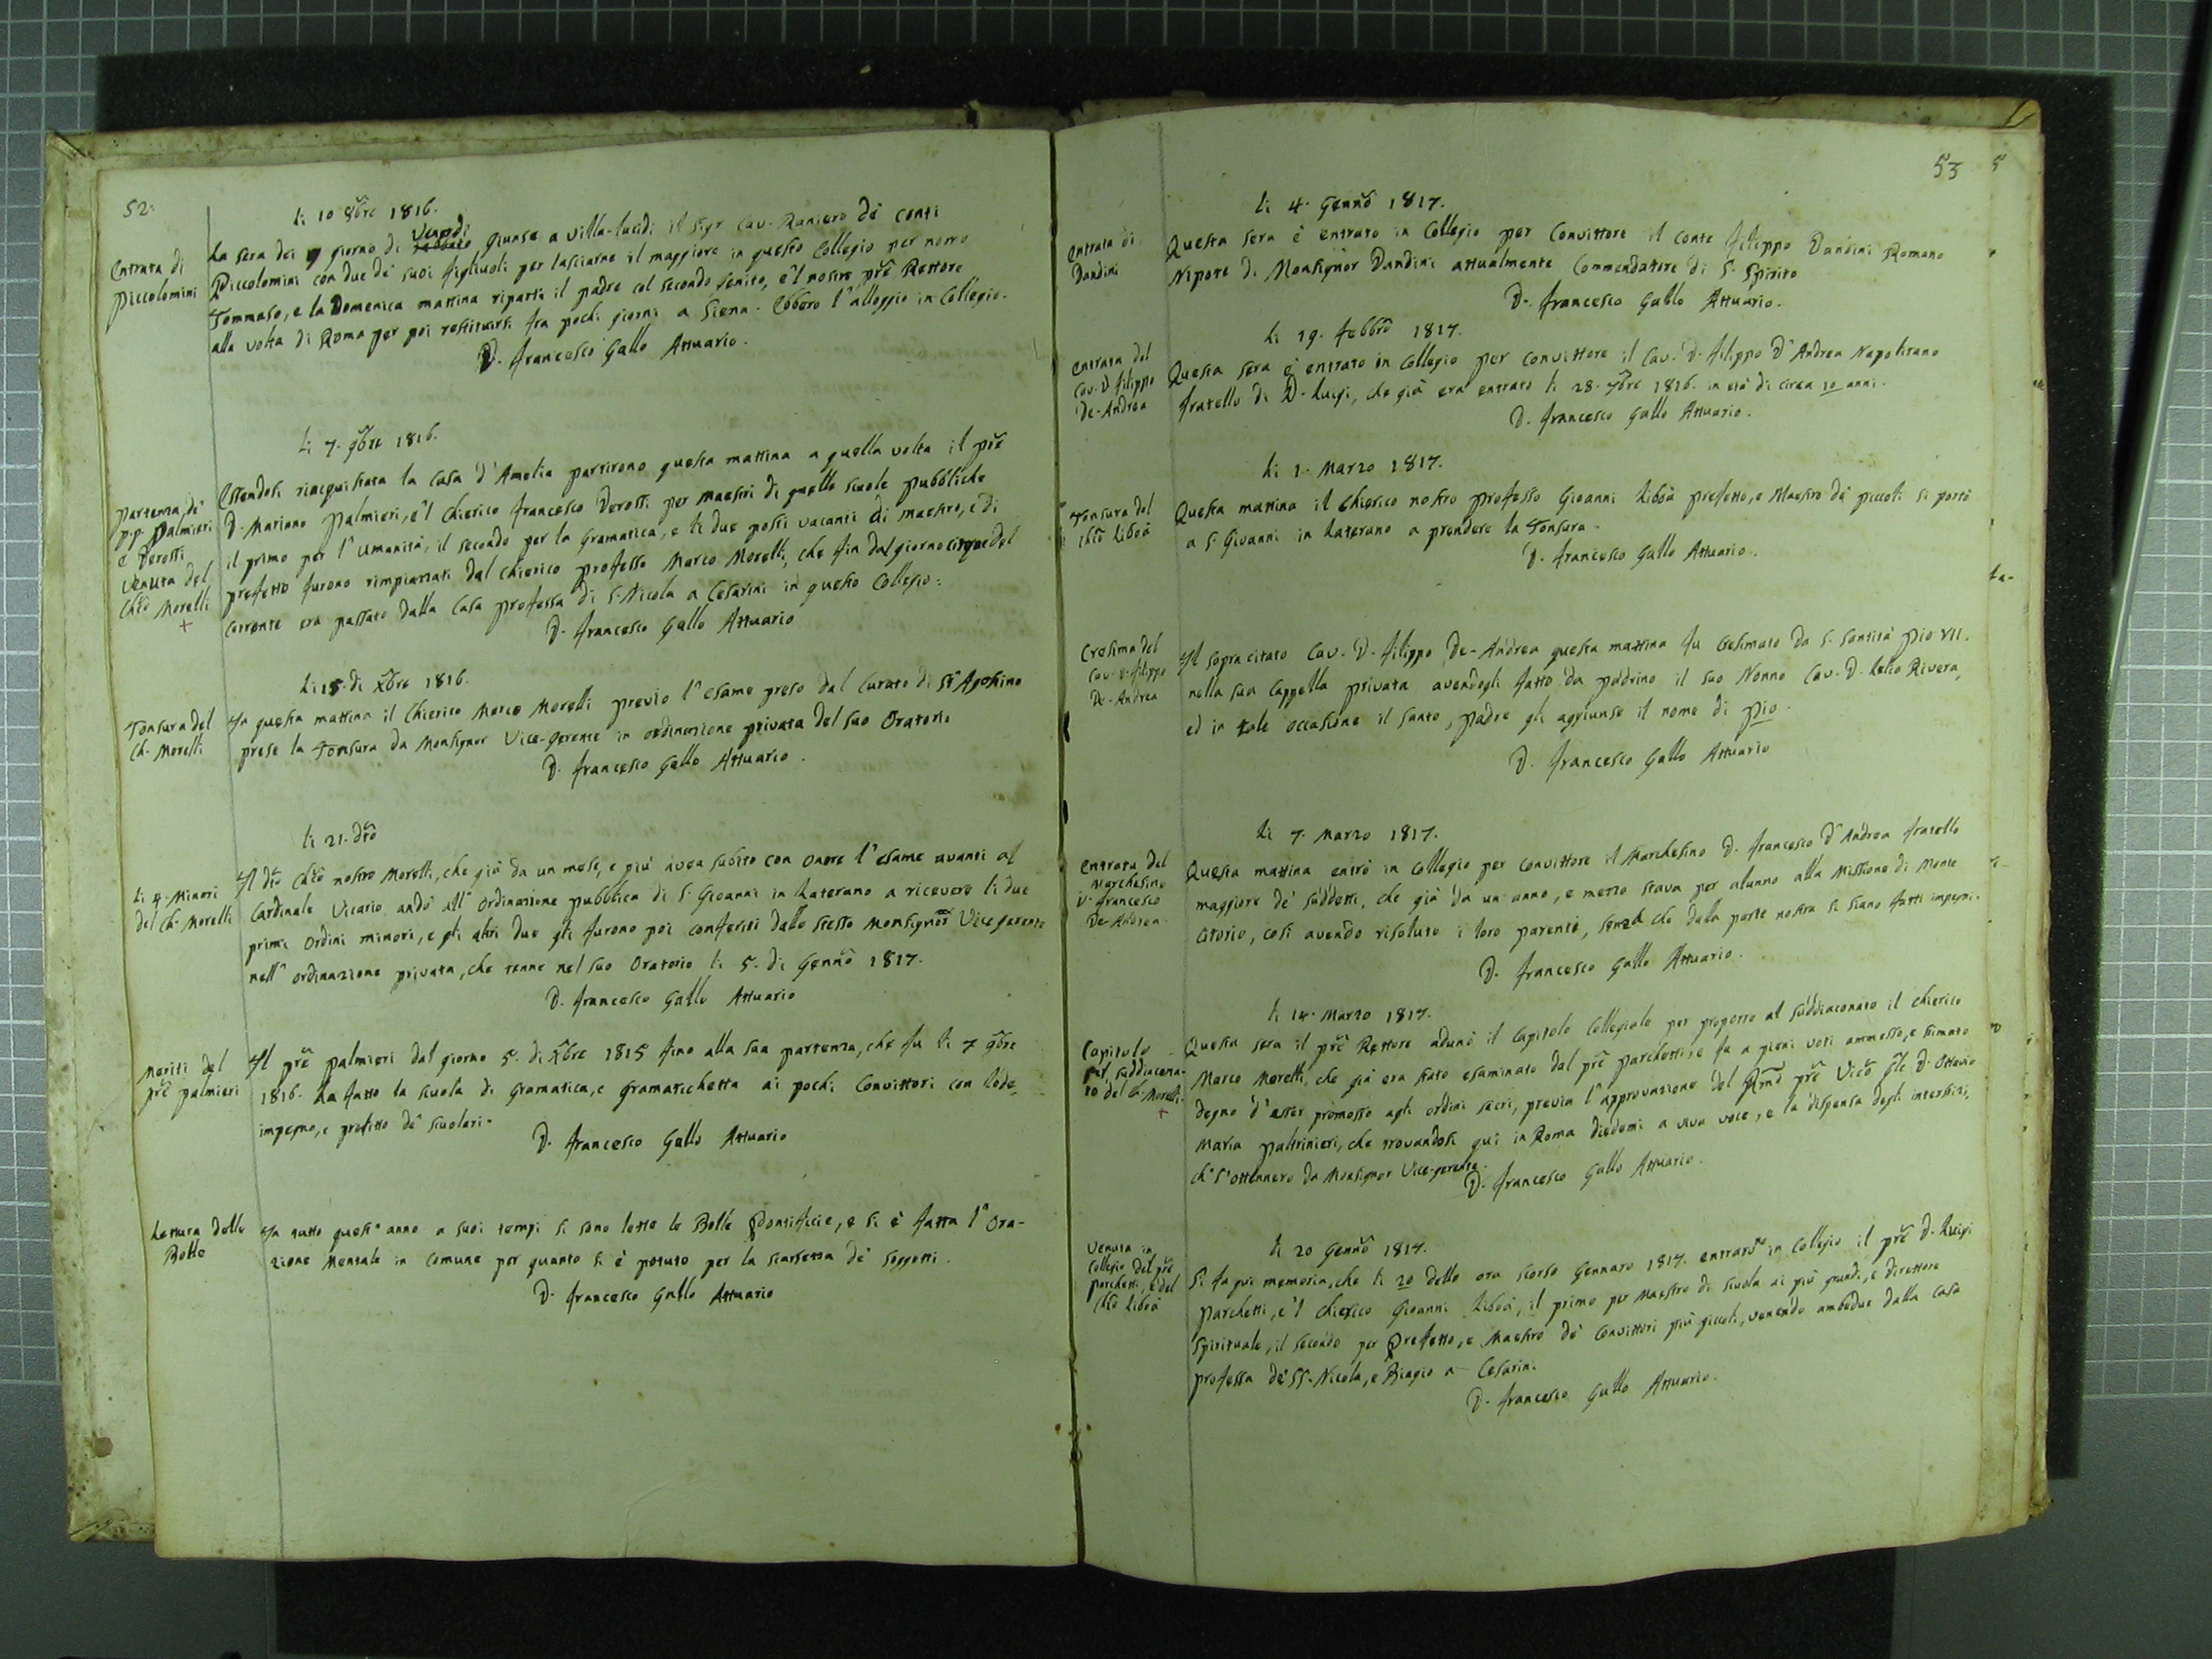 52.
li 10 8bre 1816.
Entrata di
Piccolomini
La sera dei 9 giorno di Venerdi giunse a villa-lucidi il Sigr Cav. Raniero de' conti
Piccolomini con due de' suoi figliuoli per lasciarne il maggiore in questo Collegio per nome
Tommaso, e la Domenica mattina ripartì il padre col secondo Genito, e 'l nostro pre Rettore
alla volta di Roma per poi restituirsi fra pochi giorni a Siena. Ebbero l'alloggio in Collegio.
D. Francesco Gallo Attuario.
li 7. 9bre 1816.
Partenza di
pp. Palmieri
e Perotti
Venuta del
Chco Morelli
+
Essendosi riacquistata la casa d'Amelia partirono questa mattina a quella volta il pre
D. Mariano Palmieri, e 'l chierico Francesco Perotti per maestri di quelle scuole pubbliche
il primo per l'umanità, il secondo per la Gramatica, e li due posti vacanti di maestro, e di
prefetto furono rimpiazzati dal chierico professo Marco Morelli, che fin dal giorno cinque del
corrente era passato dalla Casa professa di S. Nicola a Cesarini in questo Collegio.
D. Francesco Gallo Attuario
li 15. di Xbre 1816.
Tonsura del
Ch. Morelli
In questa mattina il Chierico Marco Morelli previo l'esame preso dal Curato di St Agostino
prese la Tonsura da Monsignor Vice-gerente in ordinazione privata del suo Oratorio
D. Francesco Gallo Attuario.
li 21. dto
li 4. Minori
del Ch. Morelli
Il dto Chco nostro Morelli, che già da un mese, e più avea subito con onore l'esame avanti al
Cardinale Vicario andò all'Ordinazione pubblica di S. Giovanni in Laterano a ricevere li due
primi ordini minori, e gli altri due gli furono poi conferiti dallo stesso Monsignor Vicegerente
nell'ordinazione privata, che tenne nel suo Oratorio li 5. di Gennro 1817.
D. Francesco Gallo Attuario
Meriti del
pre Palmieri
Il pre Palmieri dal giorno 5. di Xbre 1815 fino alla sua partenza, che fu li 7 9bre
1816. ha fatto la scuola di Gramatica, e Gramatichetta ai pochi Convittori con lode,
impegno, e profitto de' scuolari.
D. Francesco Gallo Attuario
Lettura delle
Bolle
In tutto quest'anno a suoi tempi si sono lette le Bolle Pontificie, e si è fatta l'Ora-
zione Mentale in comune per quanto si è potuto per la scarsezza de' soggetti.
D. Francesco Gallo Attuario
53
li 4. Gennro 1817.
Entrata di
Dandini
Questa sera è entrato in Collegio per Convittore il Conte Filippo Dandini Romano
Nipote di Monsignor Dandini attualmente Commendatore di S. Spirito
D. Francesco Gallo Attuario.
li 19. Febbro 1817.
Entrata del
Cav. D. Filippo
De-Andrea
Questa sera è entrato in Collegio per Convittore il Cav. D. Filippo D'Andrea Napolitano
fratello di D. Luigi, che già era entrato li 28. 7bre 1816. in età di circa 10 anni.
D. Francesco Gallo Attuario.
li 1. Marzo 1817.
Tonsura del
Chco Liboà
Questa mattina il Chierico nostro professo Giovanni Liboà prefetto, e Maestro de' piccoli si portò
a S. Giovanni in Laterano a prendere la Tonsura.
D. Francesco Gallo Attuario.
Cresima del
Cav. D. Filippo
De-Andrea
Il sopracitato Cav. D. Filippo De-Andrea questa mattina fu Cresimato da S. Santità Pio VII.
nella sua Cappella privata avendogli fatto da padrino il suo Nonno Cav. D. Lelio Rivera,
ed in tale occasione il Santo Padre gli aggiunse il nome di Pio.
D. Francesco Gallo Attuario
li 7. Marzo 1817.
Entrata del
Marchesino
D. Francesco
De Andrea
Questa mattina entrò in Collegio per Convittore il Marchesino D. Francesco D'Andrea fratello
maggiore de' suddetti, che già da un anno, e mezzo stava per alunno alla Missione di Monte
Citorio, così avendo risoluto i loro parenti, senza che dalla parte nostra si siano fatti impegni.
D. Francesco Gallo Attuario.
li 14. Marzo 1817.
Capitolo
per suddiacona-
to del Ch. Morelli
+
Questa sera il pre Rettore adunò il Capitolo Collegiale per proporre al suddiaconato il chierico
Marco Morelli, che già era stato esaminato dal pre Parchetti, e fu a pieni voti ammesso, e stimato
degno d'esser promosso agli ordini sacri, previa l'approvazione del Rmo pre Vico Gle D. Ottavio
Maria Paltrinieri, che trovandosi quì in Roma diedemi a viva voce, e la dispensa degli interstizi,
ch' s'ottennero da Monsignor Vice-gerente.
D. Francesco Gallo Attuario.
li 20 Gennro 1817.
Venuta in
Collegio del pre
Parchetti, e del
Chco Liboà
Si fa quì memoria, che li 20 dello ora scorso Gennaro 1817. entrarono in Collegio il pre D. Luigi
Parchetti, e 'l chierico Giovanni Liboà, il primo per Maestro di scuola ai più grandi, e direttore
spirituale, il secondo per Prefetto, e Maestro de' Convittori più piccoli, venendo ambedue dalla Casa
professa de' SS. Nicola, e Biagio a Cesarini.
D. Francesco Gallo Attuario.